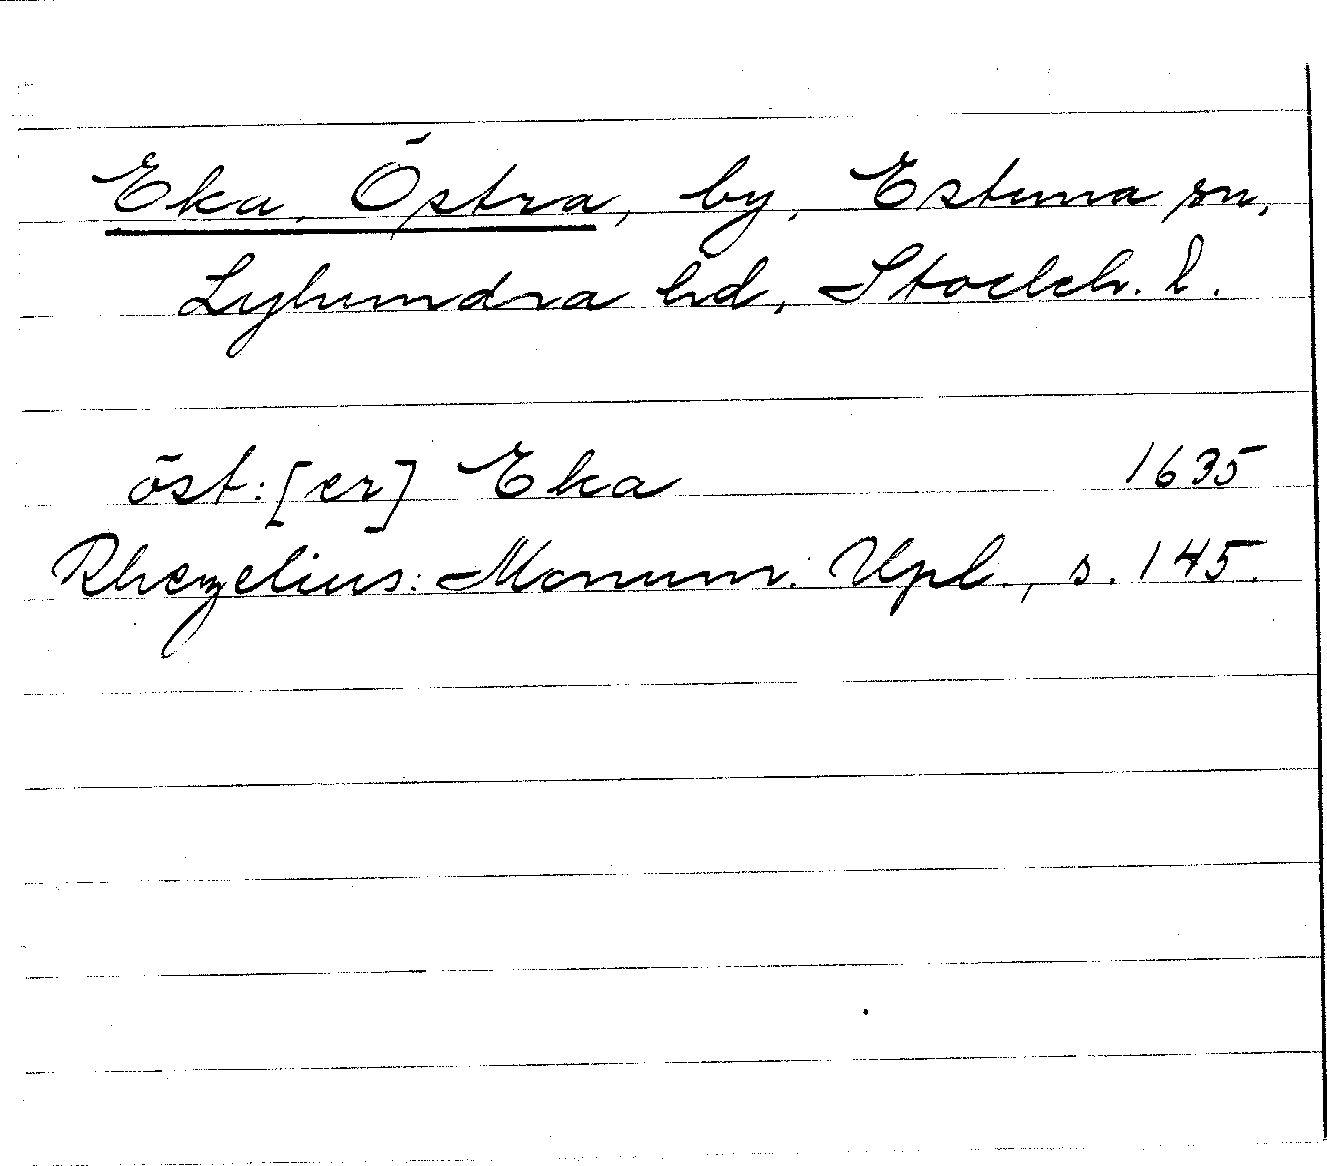 Eka, Östra, by, Estuna sn,
Lyhundra hd, Stockh. l.
öst:[er] Eka 1635
Rhezelius: Monum. Upl., s. 145.